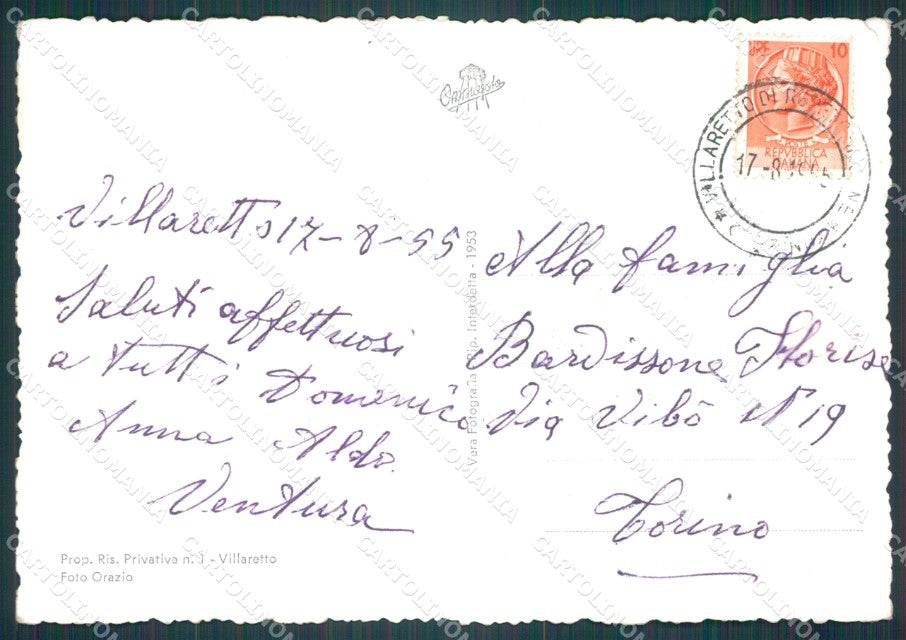 Villaretto 17-8-55
Saluti affettuosi
a tutti Domenico
Anna Aldo
Ventura
Prop. Ris. Privativa n. 1 - Villaretto
Foto Orazio
Vera Fotografia - Rip. Interdetta - 1953
LIRE 10
POSTE
REPVBBLICA
ITALIANA
VILLARETTO DI
17 -8
Alla famiglia
Bardissone Florise
Via Vibò N 19
Torino
CARTOLINOMANIA